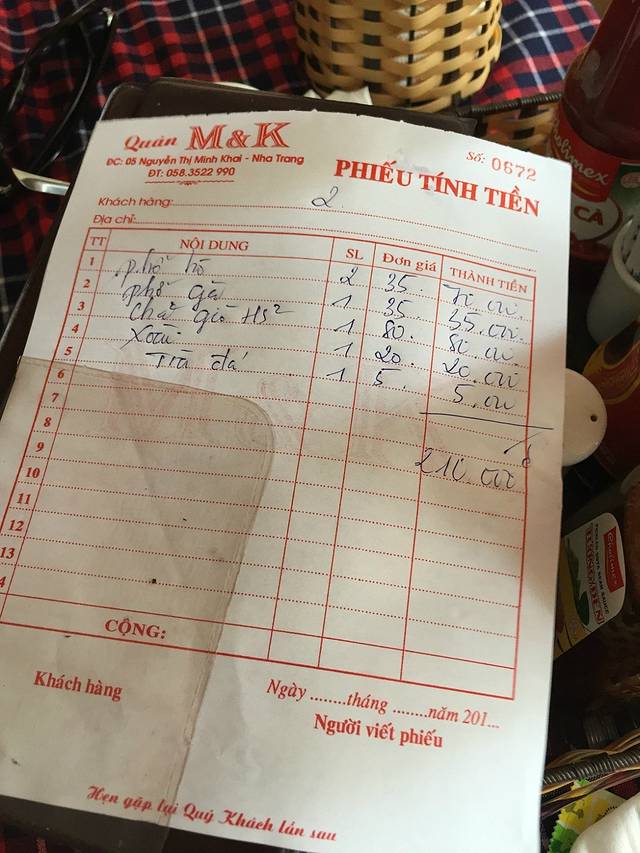 Quán M&K
ĐC: 05 Nguyễn Thị Minh Khai - Nha Trang
ĐT: 058.3522 990
Số: 0672
PHIẾU TÍNH TIỀN
Khách hàng: 2
Địa chỉ:
TT NỘI DUNG SL Đơn giá THÀNH TIỀN
1 phở bò 2 35. 70.000.
2 phở gà 1 35. 35.000.
3 chả giò HS² 1 80. 80.000.
4 Xoài 1 20. 20.000
5 Trà đá 1 5. 5.000
6
7
8 210.000
9
10
11
12
13
4
CỘNG:
Khách hàng
Ngày ........tháng ........năm 201...
Người viết phiếu
Hẹn gặp lại Quý Khách lần sau
olimex
CÀ
Cholimex
TƯƠNG ĐEN